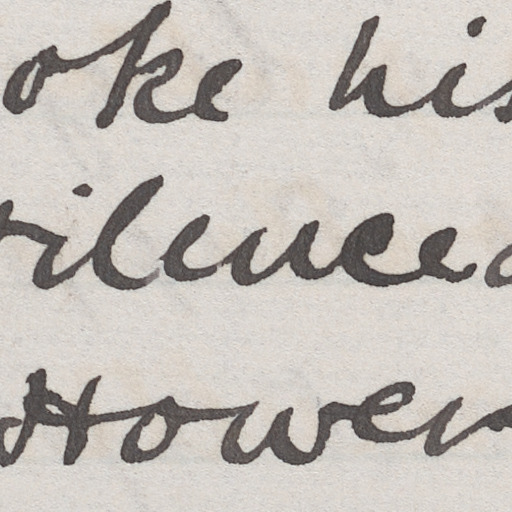 oke his
ilence
Howev